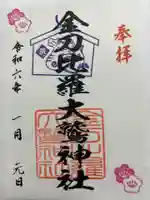 奉拝
金刀比羅大鷲神社
令和六年 一月 元日